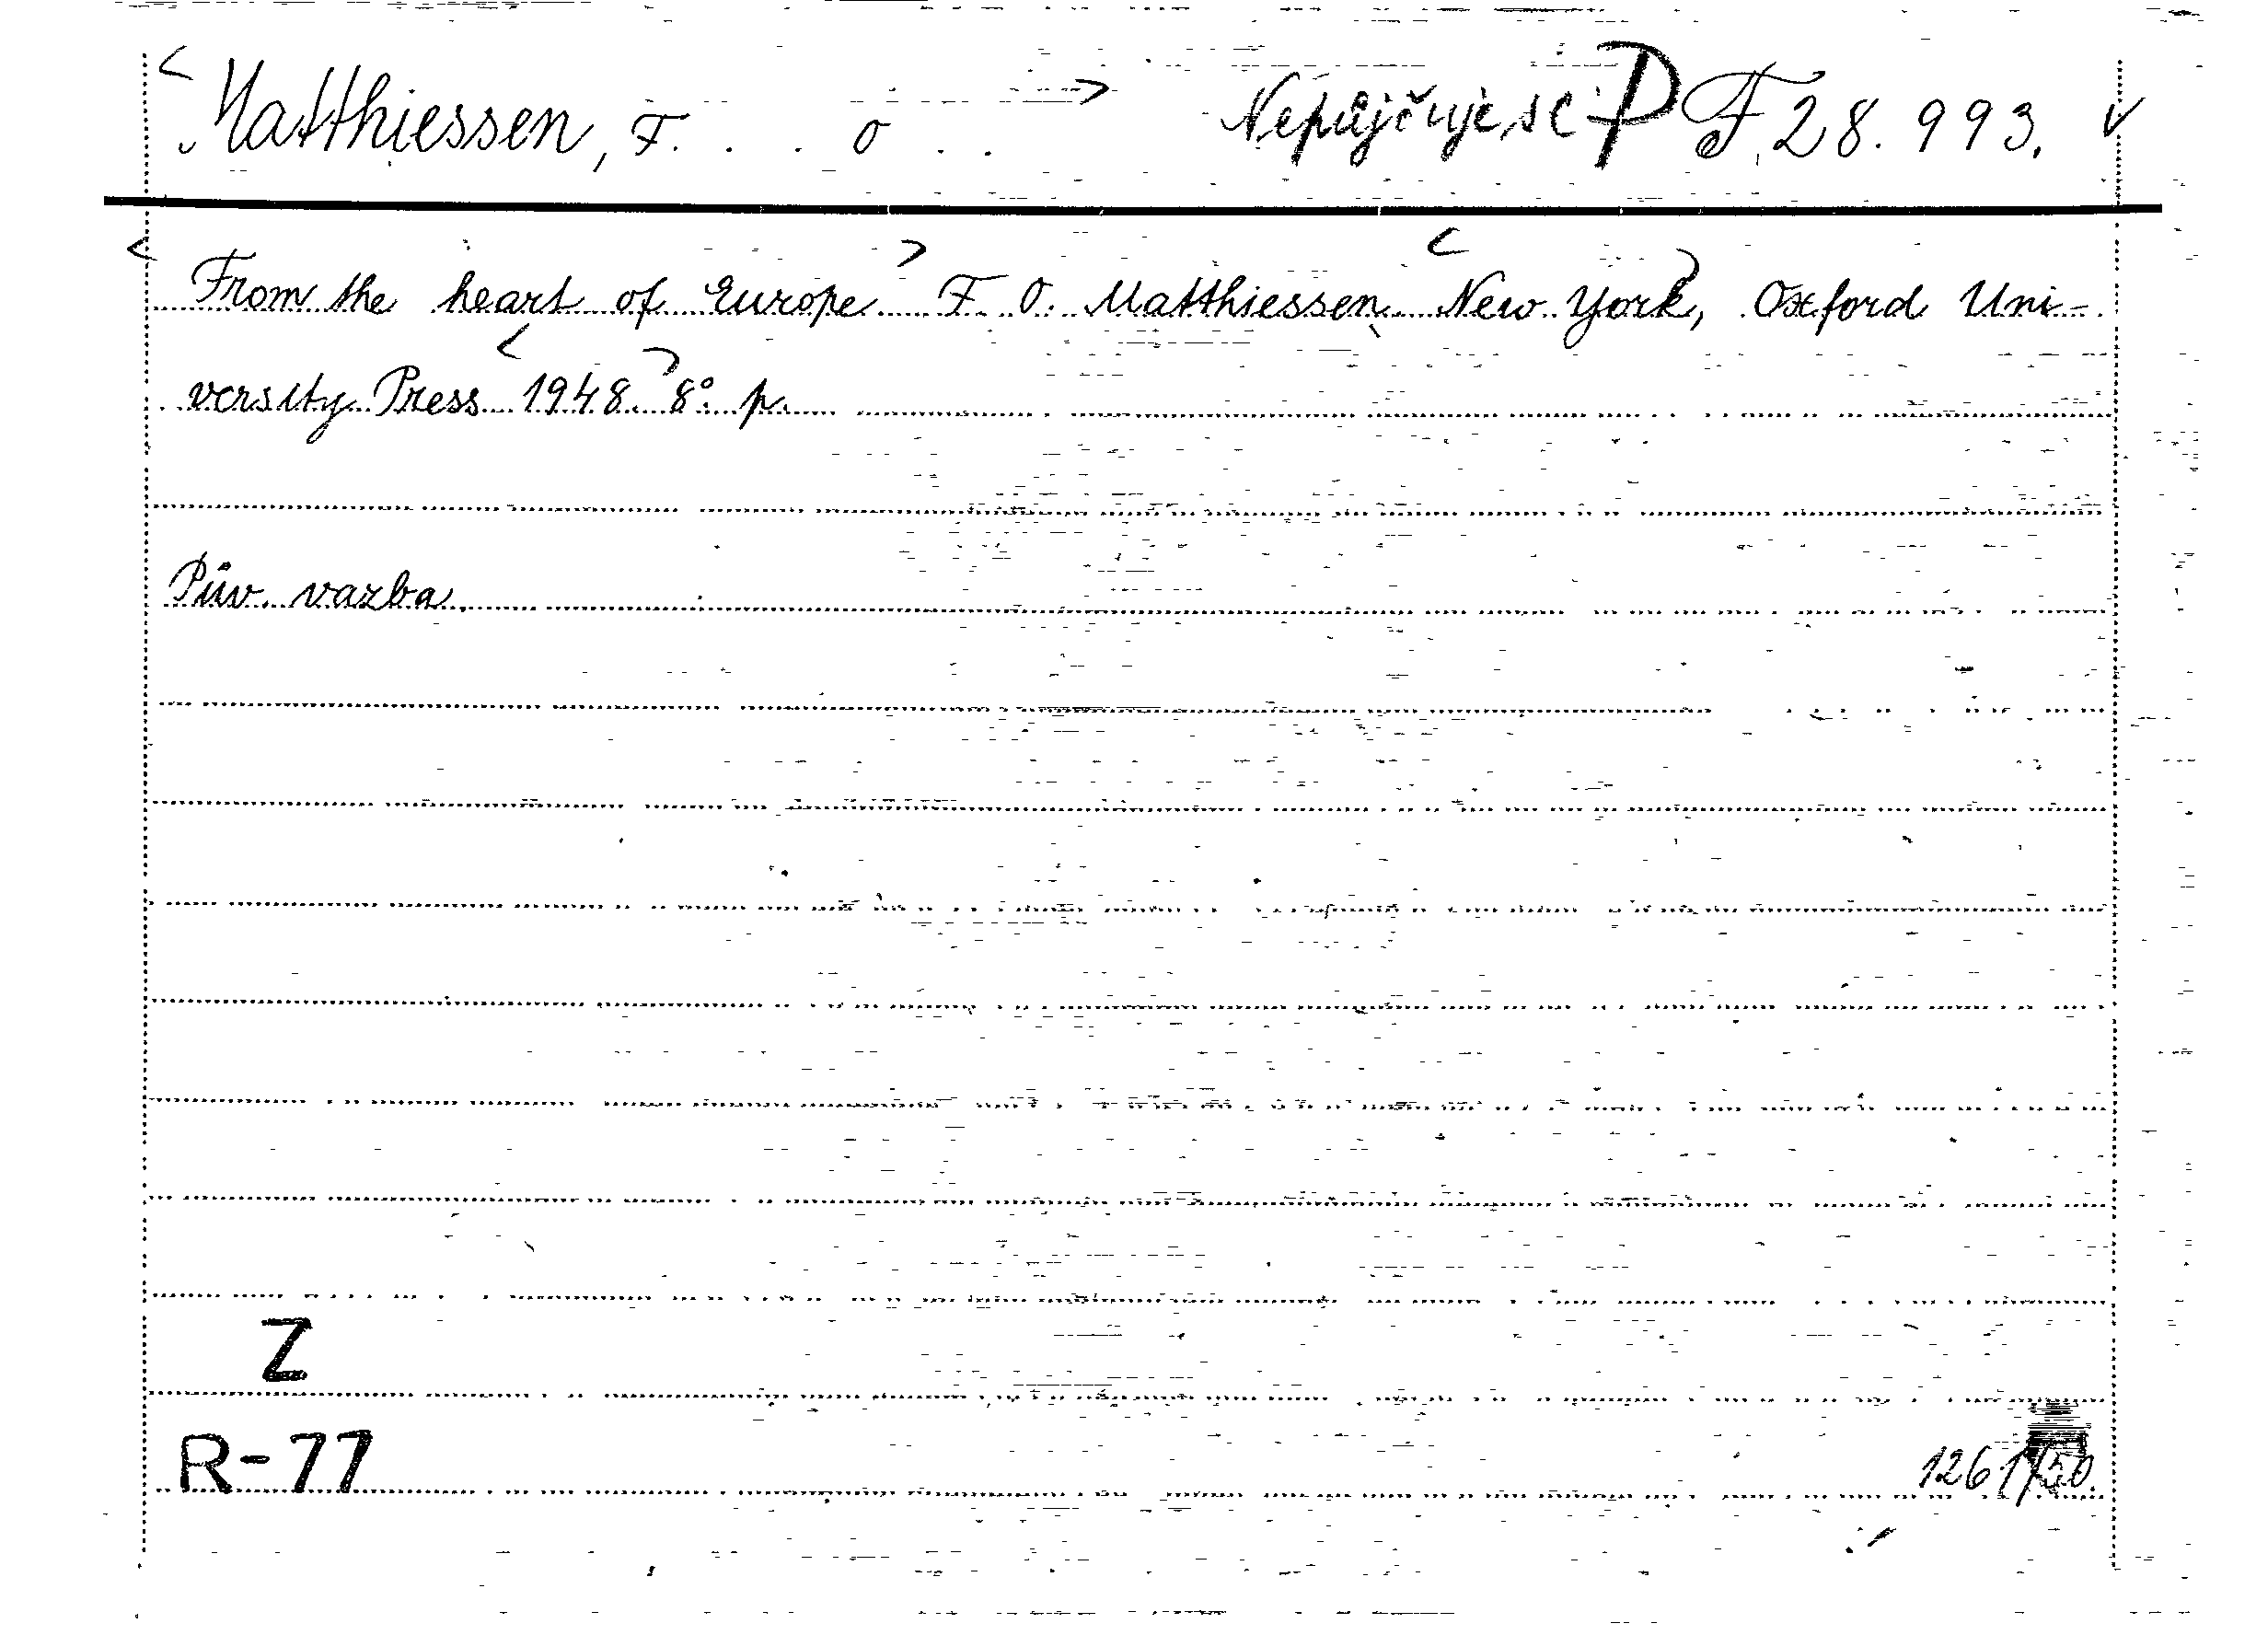 <Matthiessen, F. . . . O . .> Nepůjčuje se P F 28.993. v
<From the heart of Europe> F. O. Matthiessen. <New York>, Oxford Uni-
versity Press <1948.> 8°. p.
Pův. vazba.
Z
R-77 1261/50.